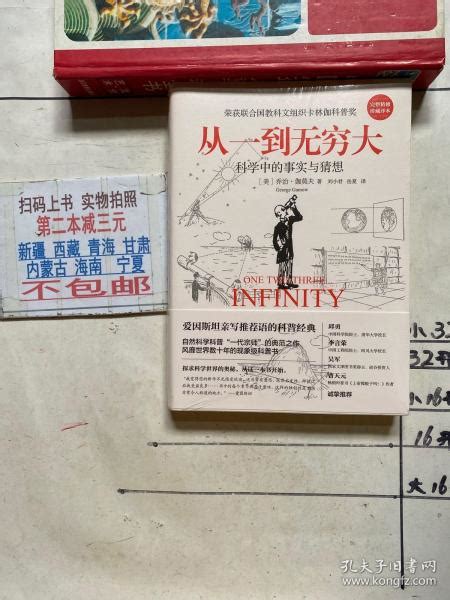 荣获联合国教科文组织卡林伽科普奖
完整精修
珍藏译本
从一到无穷大
科学中的事实与猜想
[美] 乔治·伽莫夫 著 刘小君 岳夏 译
George Gamow
ONE TWO THREE
INFINITY
爱因斯坦亲写推荐语的科普经典
自然科学科普“一代宗师”的典范之作
风靡世界数十年的现象级科普书
探求科学世界的奥秘，从这一本书开始。
邱勇
中国科学院院士、清华大学校长
李言荣
中国工程院院士、四川大学校长
吴军
曹天元
诚挚推荐
扫码上书 实物拍照
第二本减三元
新疆 西藏 青海 甘肃
内蒙古 海南 宁夏
不包邮
小32
32开
小16开
16开
大16
孔夫子旧书网
www.kongfz.com